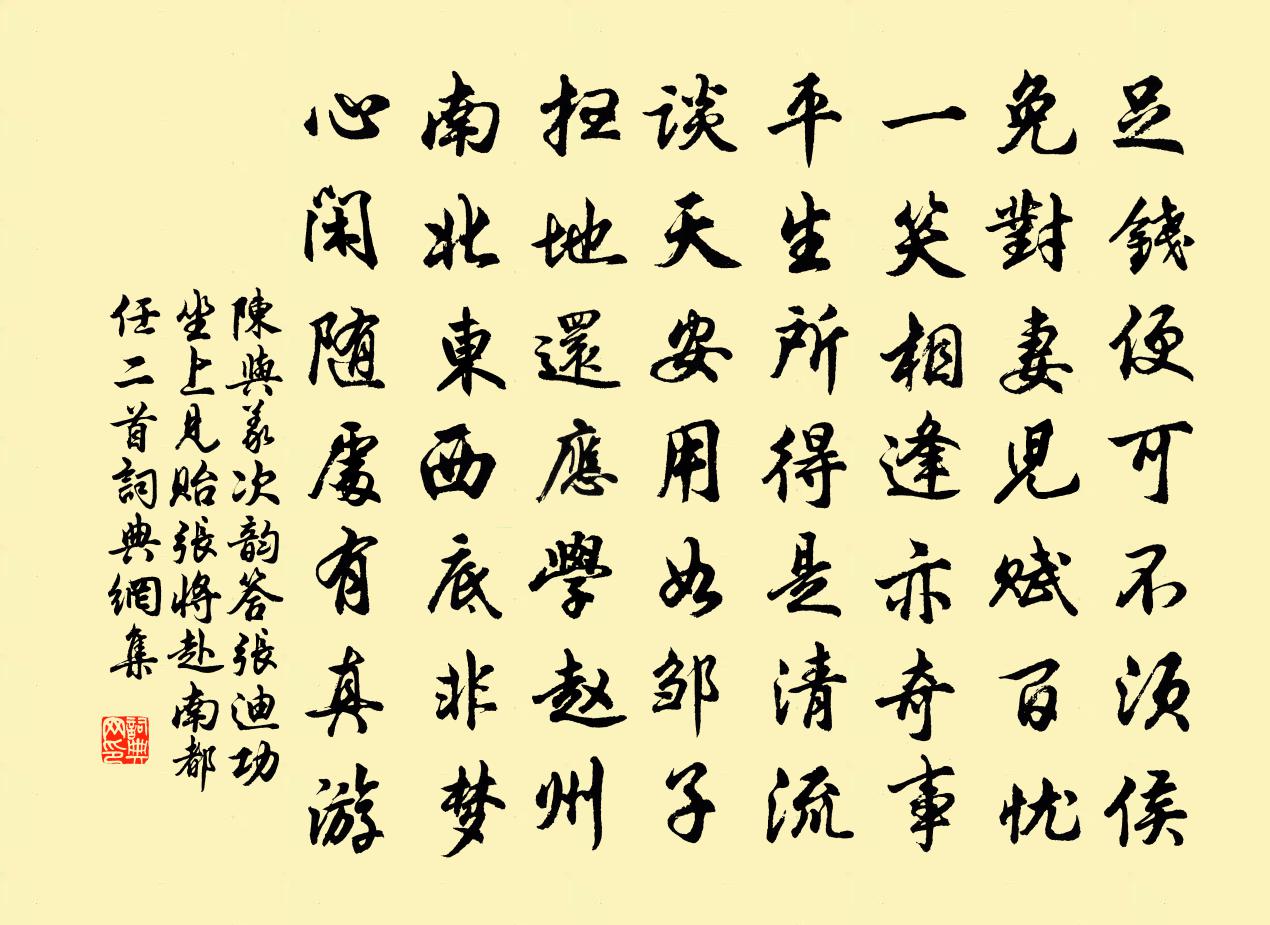 足錢便可不須侯
免對妻児賦百忧
一笑相逢亦奇事
平生所得是清流
談天安用如邹子
扫地還應學趙州
南北東西底非梦
心闲随處有真游
陳與義次韵答張迪功
坐上見貽張將赴南都
任二首詞典網集
詞典
网印